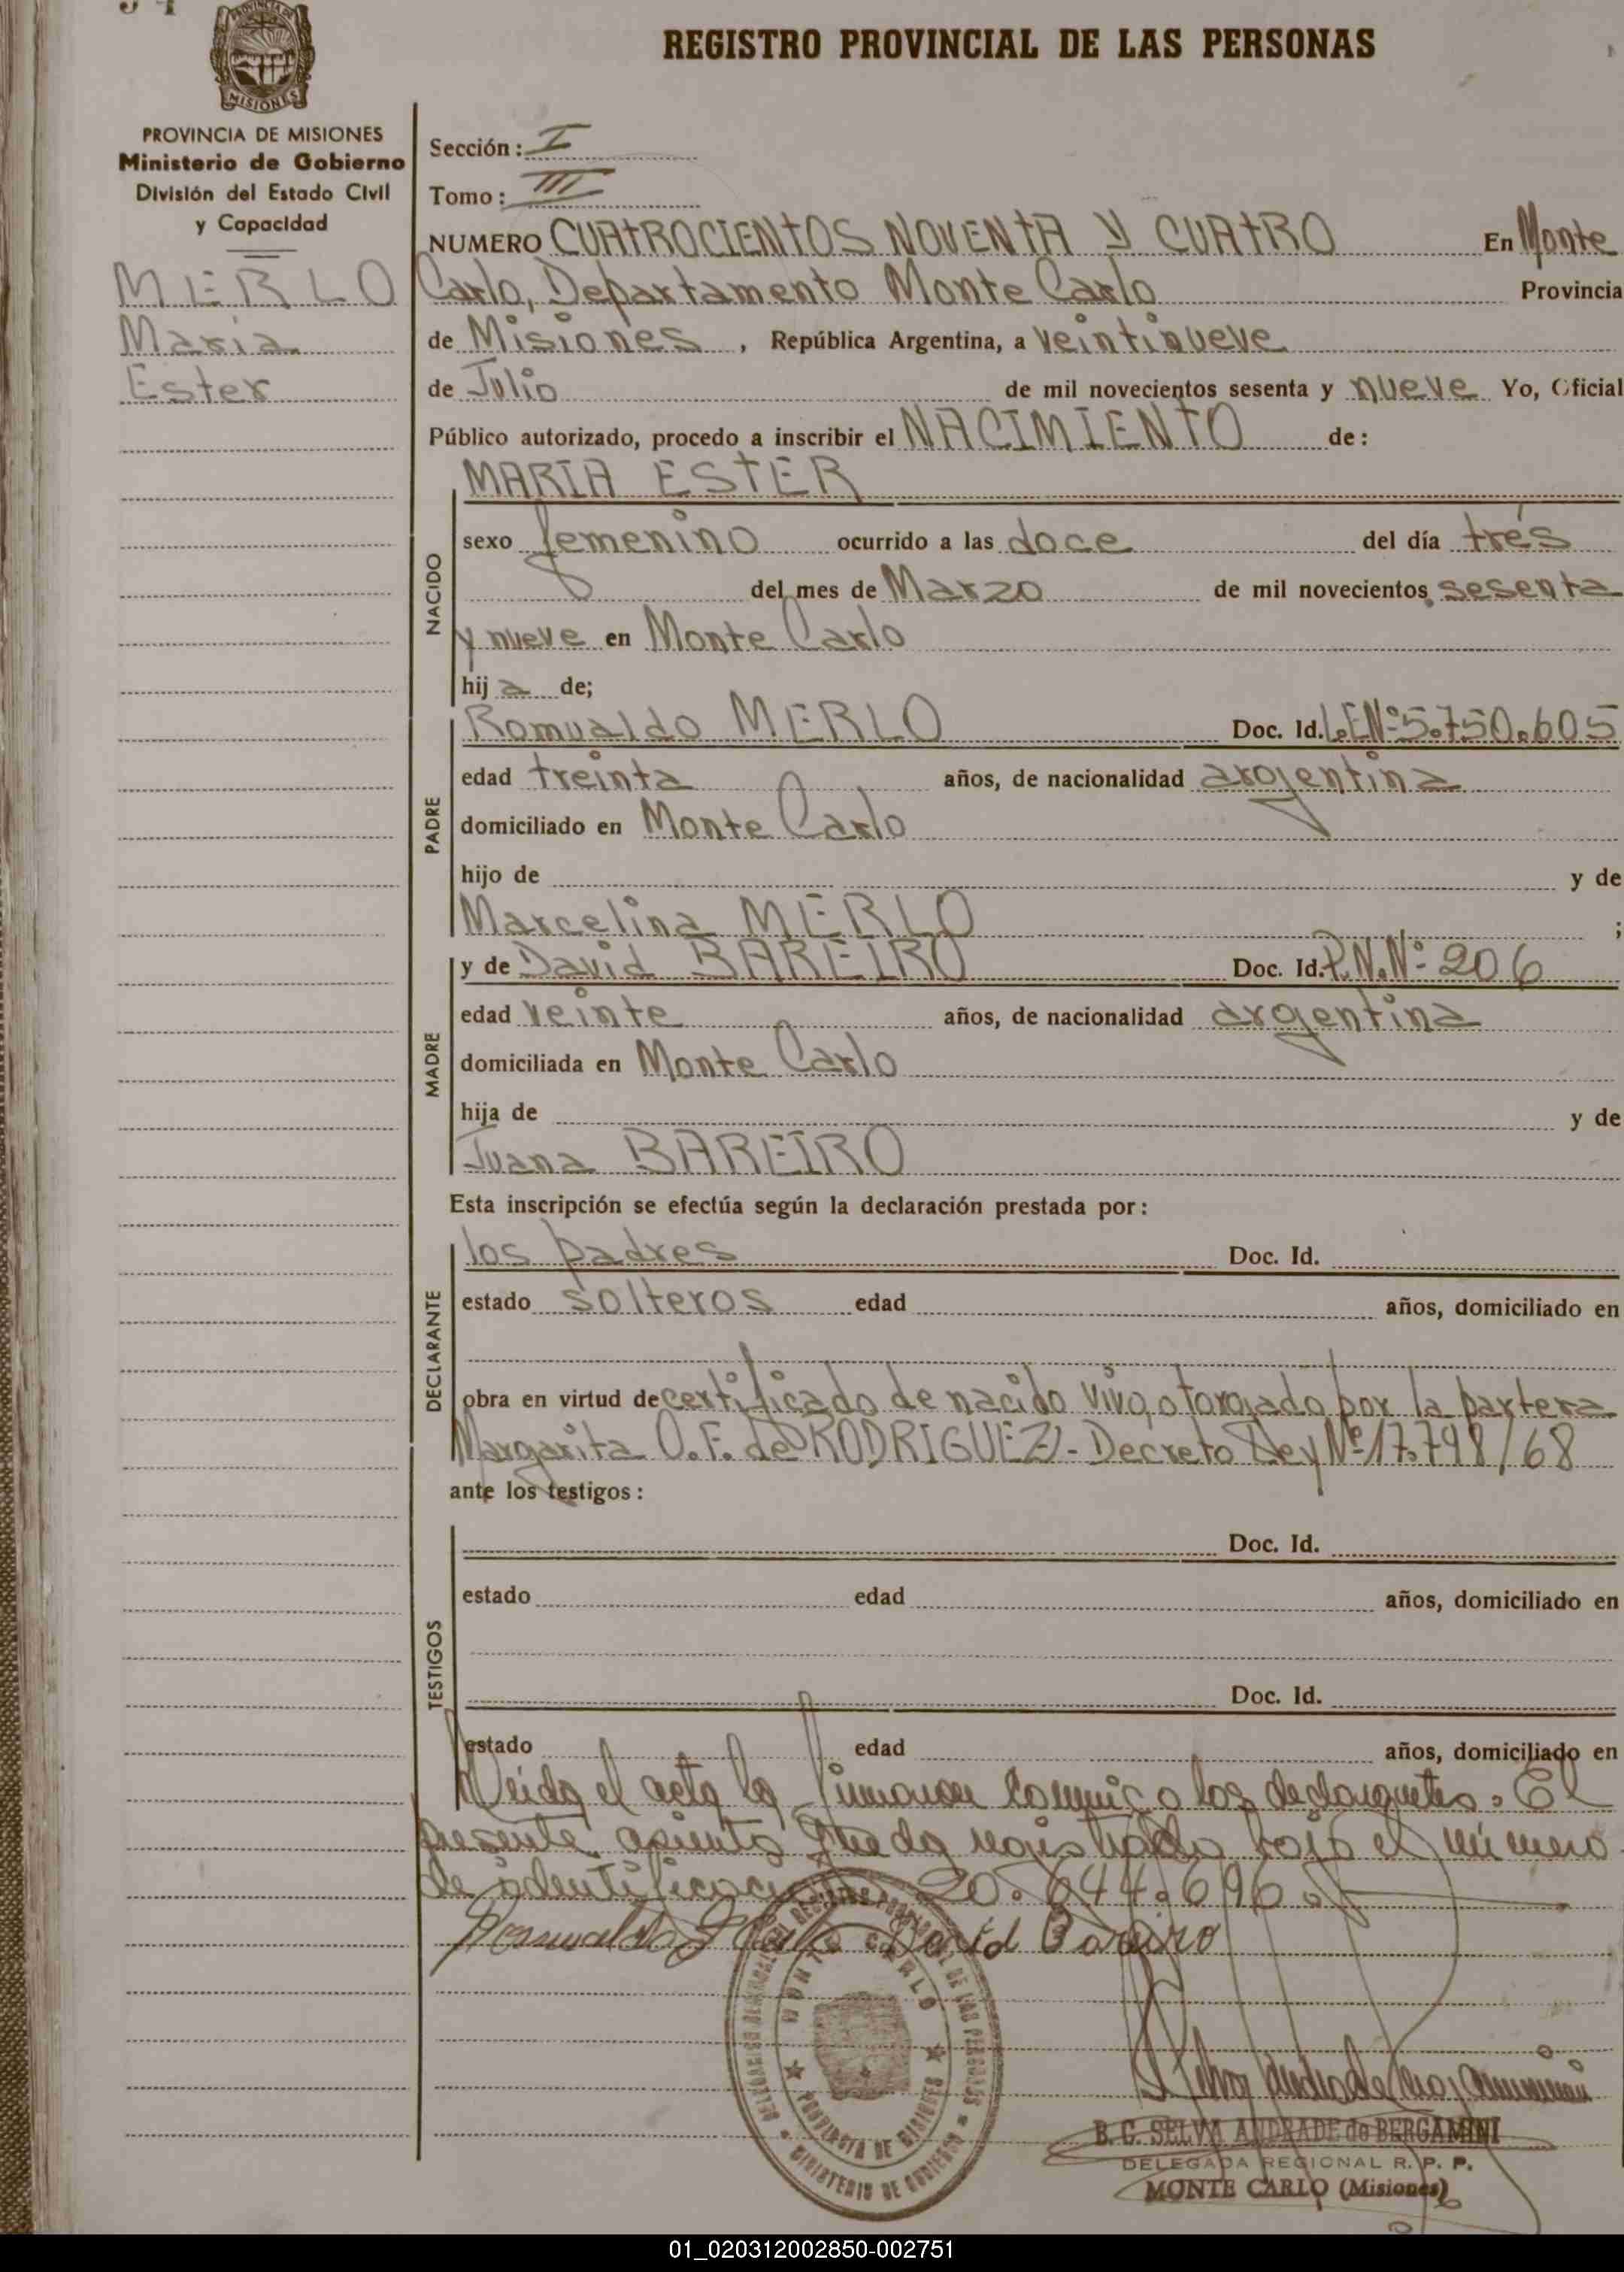 REGISTRO PROVINCIAL DE LAS PERSONAS
PROVINCIA DE MISIONES
MISIONES
PROVINCIA DE MISIONES
Ministerio de Gobierno
División del Estado Civil
y Capacidad
MERLO
Maria
Ester
Sección: I
Tomo: III
NUMERO CUATROCIENTOS NOVENTA Y CUATRO En Monte
Carlo, Departamento Monte Carlo Provincia
de Misiones, República Argentina, a veintinueve
de Julio de mil novecientos sesenta y nueve Yo, Oficial
Público autorizado, procedo a inscribir el NACIMIENTO de:
NACIDO
MARIA ESTER
sexo femenino ocurrido a las doce del día tres
del mes de Marzo de mil novecientos sesenta
y nueve en Monte Carlo
hij a de;
PADRE
Romualdo MERLO Doc. Id. L.E.Nº 5.750.605
edad treinta años, de nacionalidad argentina
domiciliado en Monte Carlo
hijo de y de
Marcelina MERLO ;
MADRE
y de David BAREIRO Doc. Id. P.N.Nº 206
edad veinte años, de nacionalidad argentina
domiciliada en Monte Carlo
hija de y de
Juana BAREIRO
Esta inscripción se efectúa según la declaración prestada por:
DECLARANTE
los padres Doc. Id.
estado solteros edad años, domiciliado en
obra en virtud de certificado de nacido vivo, otorgado por la partera
Margarita O.F. de RODRIGUEZ - Decreto Ley Nº 17.798/68
ante los testigos:
TESTIGOS
Doc. Id.
estado edad años, domiciliado en
Doc. Id.
estado edad años, domiciliado en
Leida el acta la firmaron conmigo los declarantes. El
presente asiento queda registrado bajo el número
de identificación 20.644.696.
Romualdo Merlo David Bareiro
DELEGACION REGIONAL REGISTRO PROVINCIAL DE LAS PERSONAS
MONTE CARLO
PROVINCIA DE MISIONES
MINISTERIO DE GOBIERNO
B. C. SELVA ANDRADE de BERGAMINI
DELEGADA REGIONAL R. P. P.
MONTE CARLO (Misiones)
01_020312002850-002751